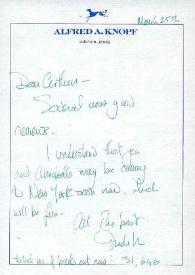 March 25th
ALFRED A. KNOPF
JUDITH B. JONES
Dear Arthur —
Several more good
reviews.
I understand that you
and may be coming
to New York soon now. Such
will be fun —
All the best
Judith
total no. of books out now: 51,646